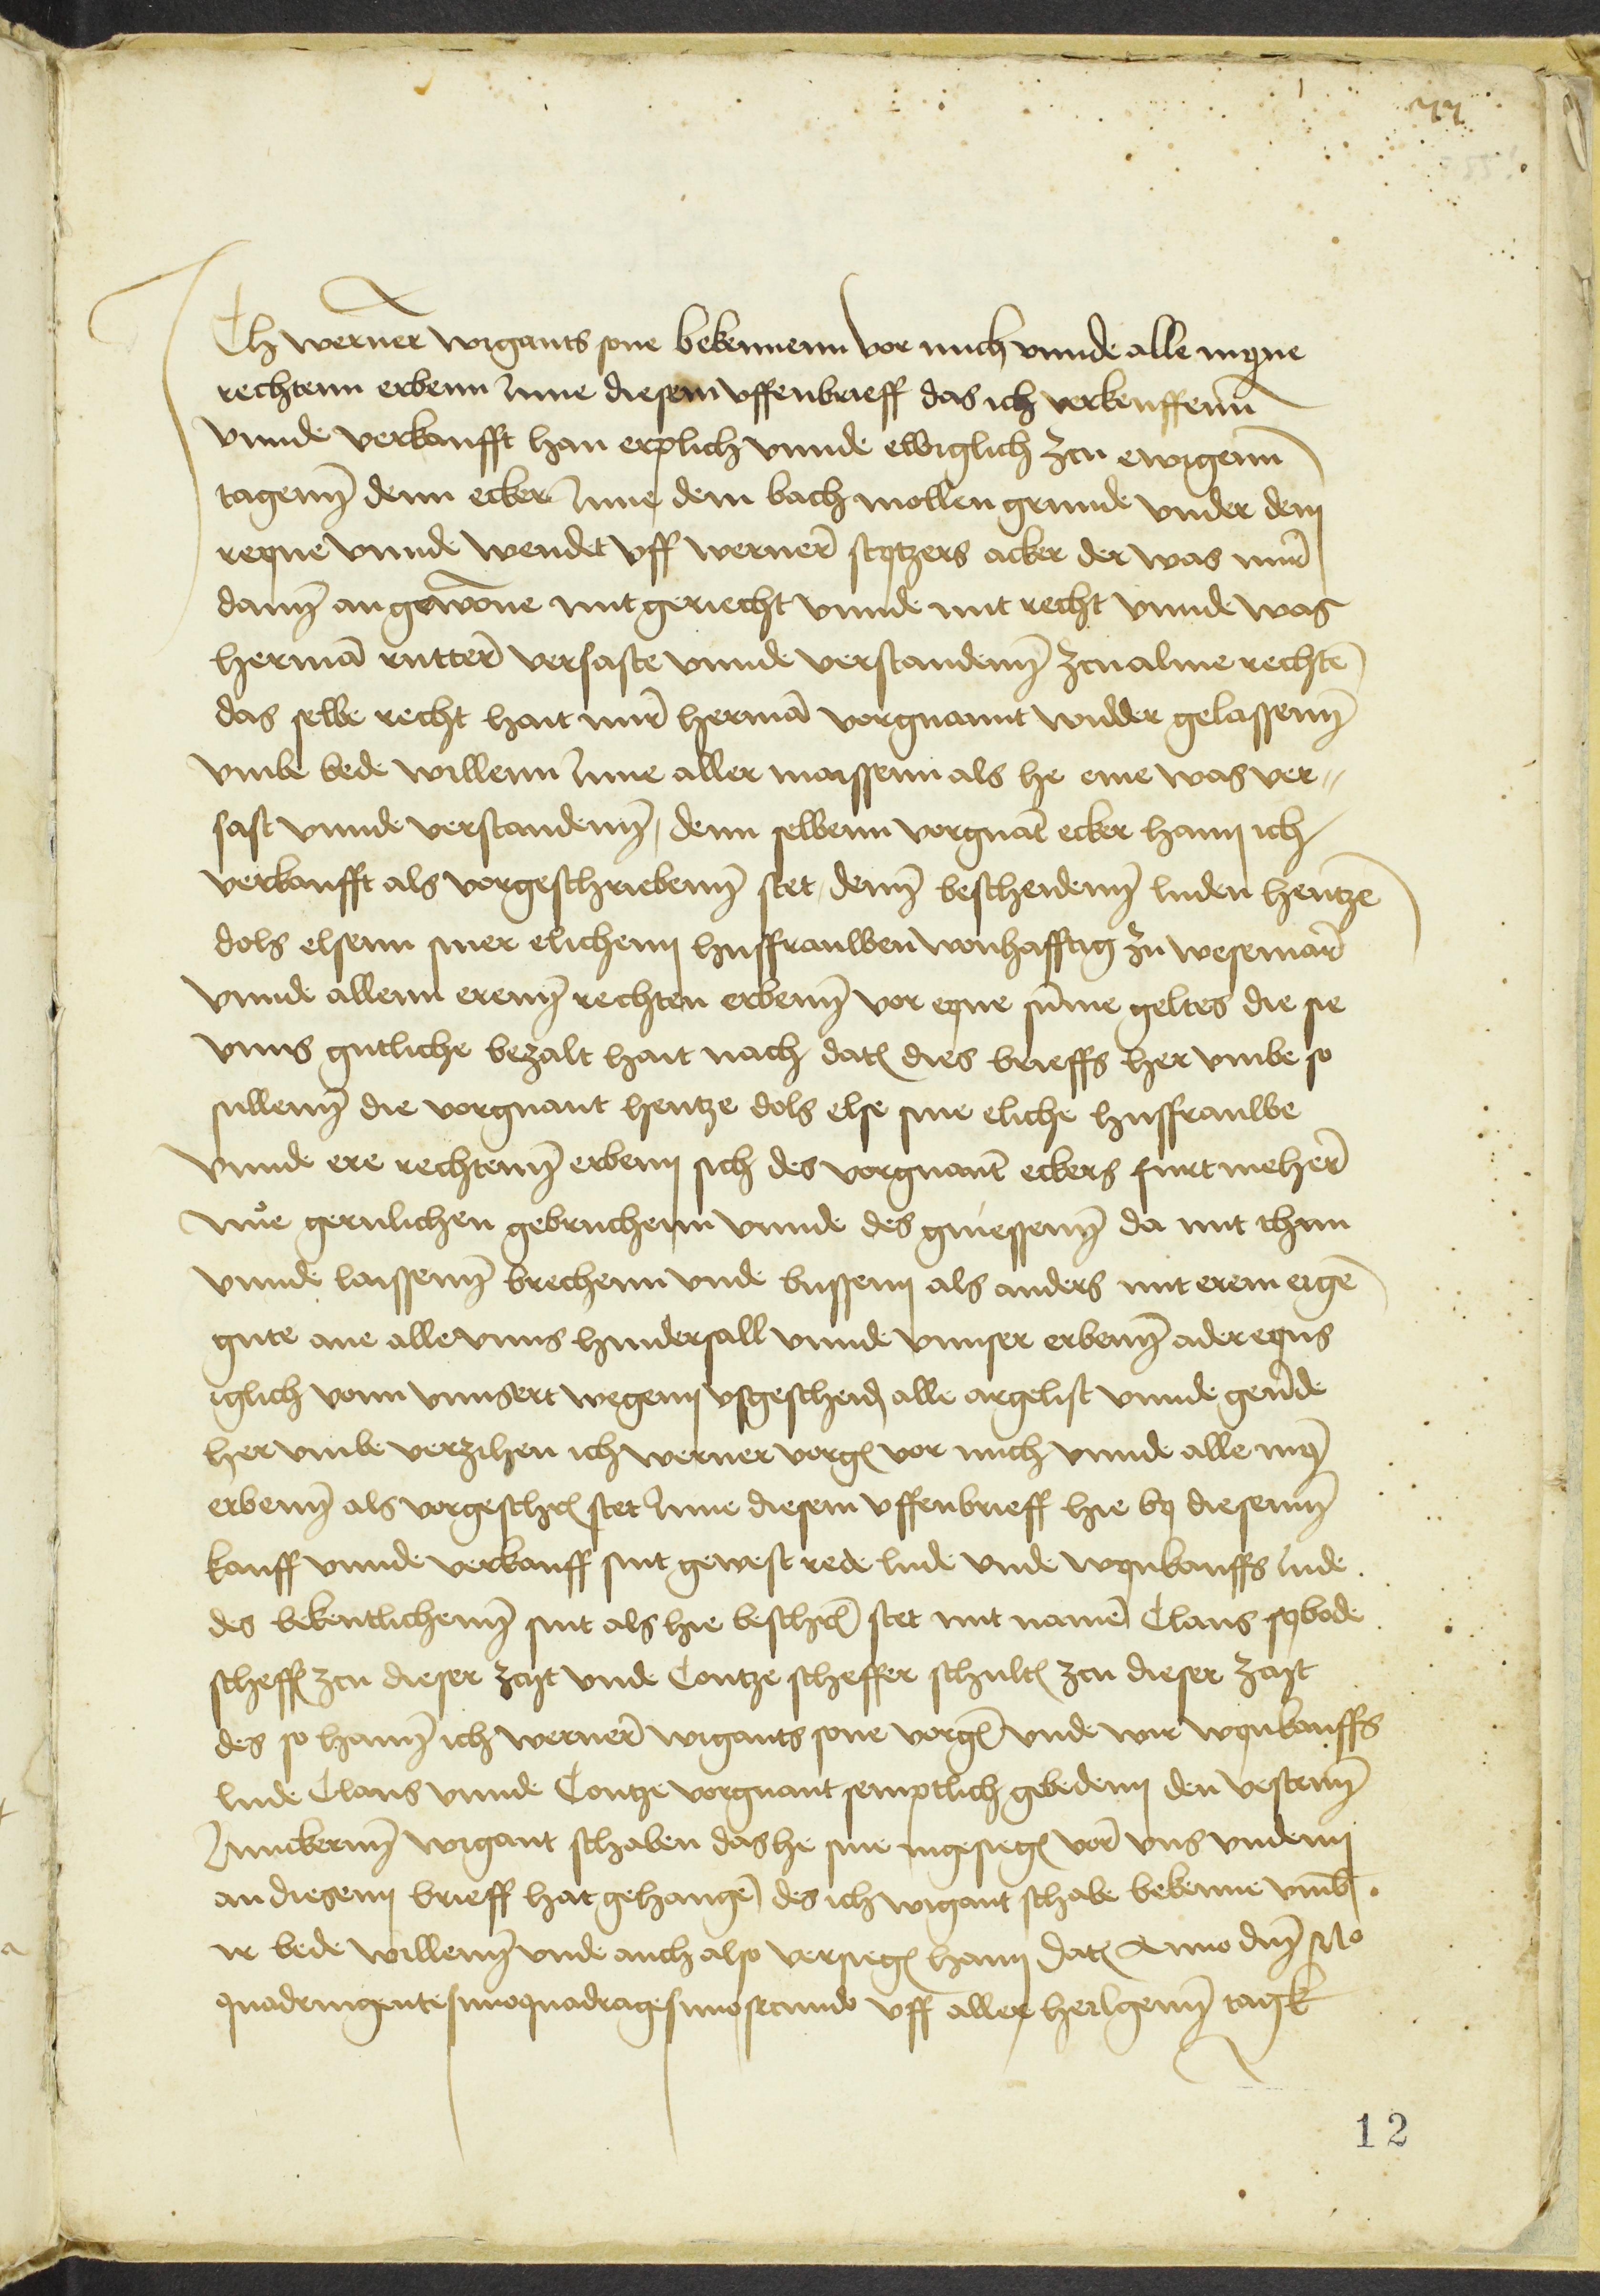 ICh werner wigants sone bekennenn vor mich vnnde alle myne
rechtenn erbenn Jnne diesem vffenbrieff das ich verkeuffenn
vnnde verkaufft han erplich vnnde ewiglich zcu ewigenn
tagenn denn ecker Jnne dem bach mollen grunde vnder dem
reyne vnnde wendet vff werner stytzers acker der was mir
dann an gewone mit geriecht vnnde mit recht vnnde was
hermā rutter versaste vnnde verstandenn zcu alme rechtē
das selbe recht hait mir hermā vorgnannt widder gelassenn
vmbe bede willenn Jnne aller maissenn als he eme was ver-
sast vnnde verstandenn, denn selbenn vorgnāt ecker hann ich
verkaufft als vorgeschriebenn stet denn bescheidenn luden hentze
dols elsenn siner elichenn husfrauwen wonhafftig zu wesemar
vnnde allenn erenn rechten erbenn vor eyne sūme geltes die sie
vnns gutliche bezalt hait nach dat dies brieffs her vmbe so
sullenn die vorgnant hentze dols else sine eliche husfrauwe
vnnde ere rechtenn erbenn sich des vorgnant eckers furt meher
me gernlichen gebruchenn vnnde des gniessenn da mit thun
vnnde laissenn brechenn vnde bussenn als anders mit erem eigē
gute ane alle vnns hindersall vnnde vnnser erbenn ader eyns
iglich vonn vnnsert wegenn vsgescheid alle argelist vnnde geūde
her vmbe verzihen ich werner vorg vor mich vnnde alle myn
erbenn als vorgeschr stet Jnne diesem vffenbrieff hie by diesenn
kauff vnnde verkauff sint gewest rede lude vnde wynkauffs lude
des bekentlichenn sint als hie beschr stet mit namē Clans sybode
scheff zcu dieser zcyt vnde Contze scheffer schult zcu dieser zcyt
des so hann ich werner wigants sone vorg vnde wir wynkauffs
lude Clans vnnde Contze vorgnant semptlich gebedenn den vestenn
Junckernn wigant schaben das he sine ingesieg vor vns vndenn
an diesenn brieff hat gehangē des ich wigant schabe bekenne vmb
ir bede willenn vnde auch also versieg hann dat Anno dn̄ Mo
quadringentesimoquadragesimosecundo vff aller heilgenn tagk
12